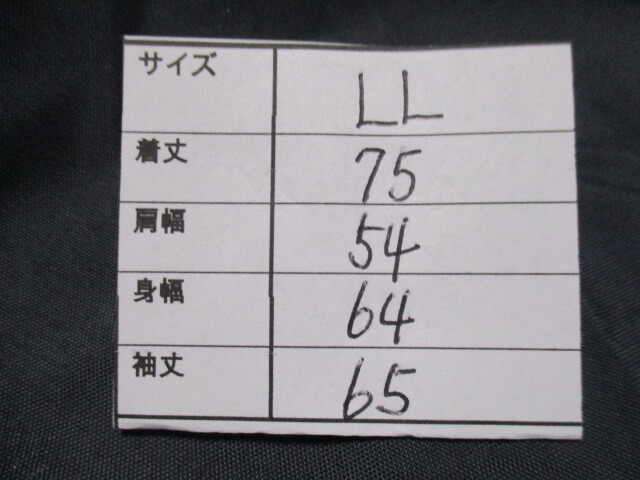 サイズ LL
着丈 75
肩幅 54
身幅 64
袖丈 65